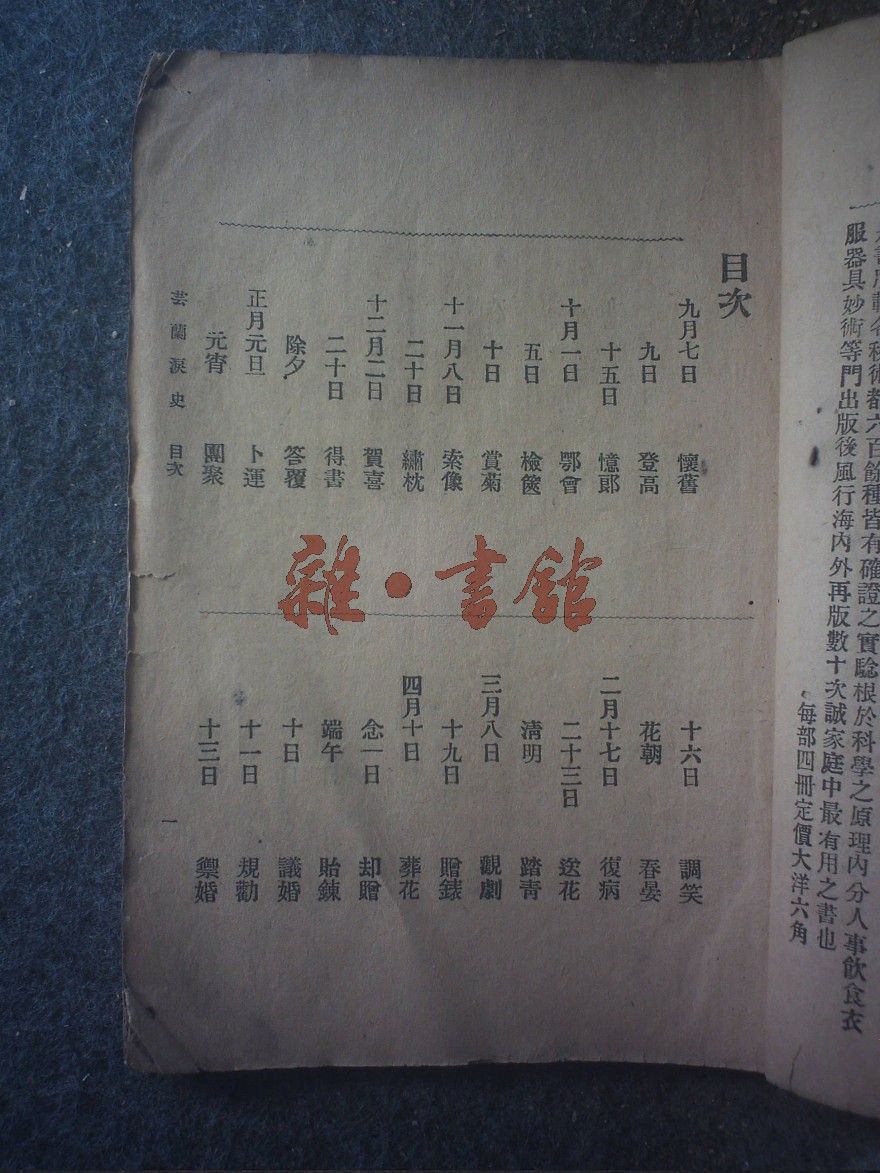 服器具妙術等門出版後風行海內外再版數十次誠家庭中最有用之書也
書所載各種術都六百餘種皆有確證之實驗根於科學之原理內分人事飲食衣
每部四冊定價大洋六角
目次
九月七日 懷舊
九日 登高
十五日 憶郎
十月一日 鄂會
五日 檢篋
十日 賞菊
十一月八日 索像
二十日 繡枕
十二月二日 賀喜
二十日 得書
除夕 答覆
正月元旦 卜運
元宵 團聚
十六日 調笑
花朝 春宴
二月十七日 復病
二十三日 送花
清明 踏青
三月八日 觀劇
十九日 贈錶
四月十日 葬花
念一日 却贈
端午 貽鍊
十日 議婚
十一日 規勸
十三日 禦婚
芸蘭淚史 目次
一
雜·書館